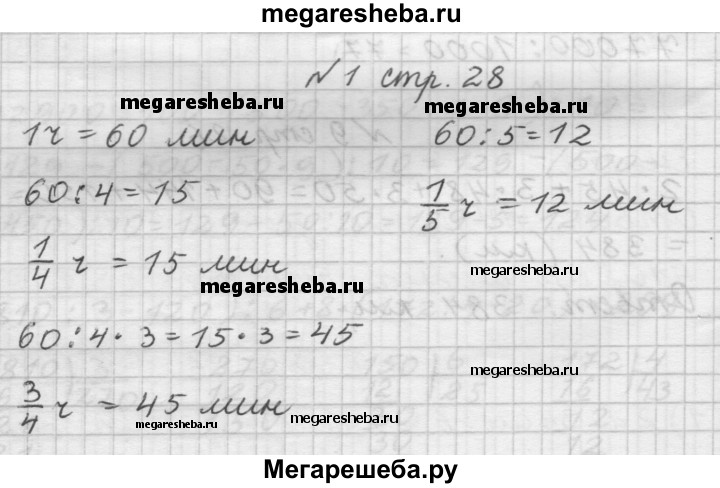 megaresheba.ru
№1 стр. 28
megaresheba.ru
megaresheba.ru
1ч = 60 мин
60:5=12
60:4=15
1/5 ч = 12 мин
1/4 ч = 15 мин
megaresheba.ru
megaresheba.ru
60:4·3=15·3=45
megaresheba.ru
3/4 ч = 45 мин
megaresheba.ru
Мегарешеба.ру